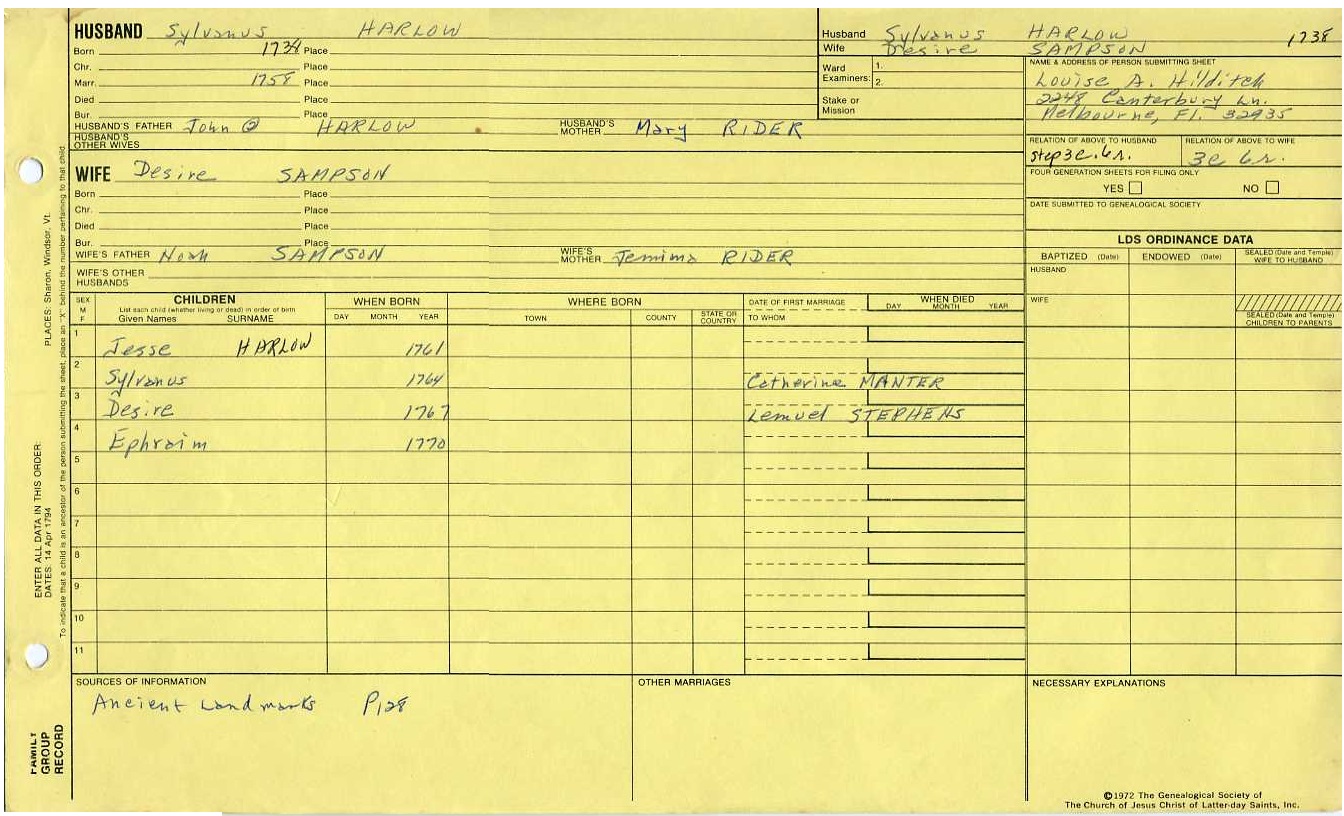 HUSBAND Sylvanus HARLOW
Born 1738 Place
Chr. Place
Marr. 1758 Place
Died Place
Bur. Place
HUSBAND'S FATHER John HARLOW HUSBAND'S MOTHER Mary RIDER
HUSBAND'S OTHER WIVES
WIFE Desire SAMPSON
Born Place
Chr. Place
Died Place
Bur. Place
WIFE'S FATHER Noah SAMPSON WIFE'S MOTHER Jemima RIDER
WIFE'S OTHER HUSBANDS
Husband Sylvanus HARLOW 1738
Wife Desire SAMPSON
Ward Examiners: 1.
2.
Stake or Mission
NAME & ADDRESS OF PERSON SUBMITTING SHEET
Louise A. Hilditch
2248 Canterbury Ln.
Melbourne, Fl. 32935
RELATION OF ABOVE TO HUSBAND RELATION OF ABOVE TO WIFE
step3c.6r. 3c 6r.
FOUR GENERATION SHEETS FOR FILING ONLY
YES NO
DATE SUBMITTED TO GENEALOGICAL SOCIETY
LDS ORDINANCE DATA
BAPTIZED (Date) ENDOWED (Date) SEALED (Date and Temple) WIFE TO HUSBAND
HUSBAND
WIFE
SEALED (Date and Temple) CHILDREN TO PARENTS
SEX M F CHILDREN WHEN BORN WHERE BORN DATE OF FIRST MARRIAGE WHEN DIED
List each child (whether living or dead) in order of birth
Given Names SURNAME DAY MONTH YEAR TOWN COUNTY STATE OR COUNTRY TO WHOM DAY MONTH YEAR
1 Jesse HARLOW 1761
2 Sylvanus 1764 Catherine MANTER
3 Desire 1767 Lemuel STEPHENS
4 Ephraim 1770
5
6
7
8
9
10
11
SOURCES OF INFORMATION
Ancient Landmarks P128
OTHER MARRIAGES
NECESSARY EXPLANATIONS
©1972 The Genealogical Society of
The Church of Jesus Christ of Latter-day Saints, Inc.
PLACES: Sharon, Windsor, Vt.
ENTER ALL DATA IN THIS ORDER:
DATES: 14 Apr 1794
To indicate that a child is an ancestor of the person submitting the sheet, place an "X" behind the number pertaining to that child.
FAMILY
GROUP
RECORD